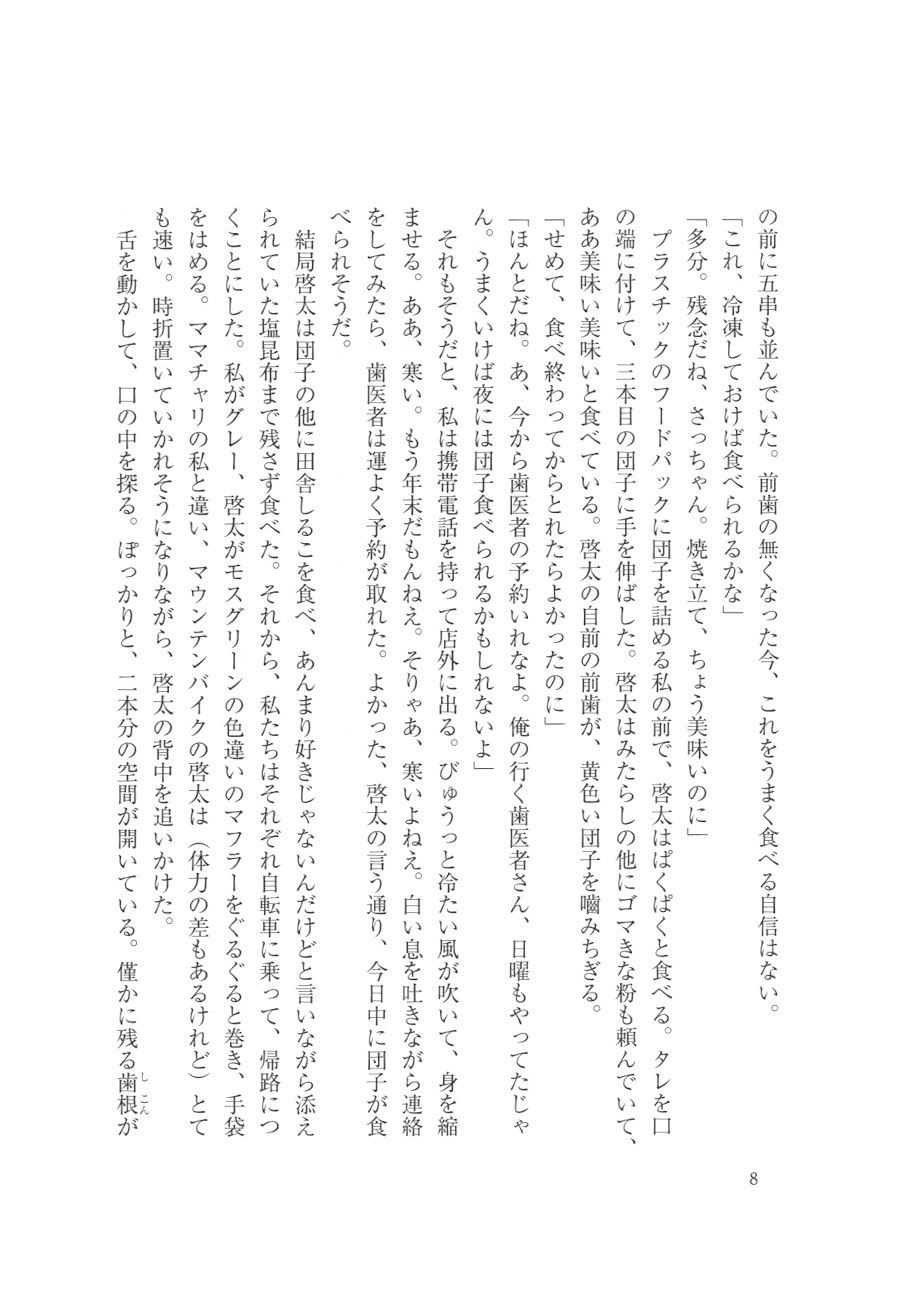 の前に五串も並んでいた。前歯の無くなった今、これをうまく食べる自信はない。
「これ、冷凍しておけば食べられるかな」
「多分。残念だね、さっちゃん。焼き立て、ちょう美味いのに」
　プラスチックのフードパックに団子を詰める私の前で、啓太はぱくぱくと食べる。タレを口
の端に付けて、三本目の団子に手を伸ばした。啓太はみたらしの他にゴマきな粉も頼んでいて、
ああ美味い美味いと食べている。啓太の自前の前歯が、黄色い団子を嚙みちぎる。
「せめて、食べ終わってからとれたらよかったのに」
「ほんとだね。あ、今から歯医者の予約いれなよ。俺の行く歯医者さん、日曜もやってたじゃ
ん。うまくいけば夜には団子食べられるかもしれないよ」
　それもそうだと、私は携帯電話を持って店外に出る。びゅうっと冷たい風が吹いて、身を縮
ませる。ああ、寒い。もう年末だもんねえ。そりゃあ、寒いよねえ。白い息を吐きながら連絡
をしてみたら、歯医者は運よく予約が取れた。よかった、啓太の言う通り、今日中に団子が食
べられそうだ。
　結局啓太は団子の他に田舎しるこを食べ、あんまり好きじゃないんだけどと言いながら添え
られていた塩昆布まで残さず食べた。それから、私たちはそれぞれ自転車に乗って、帰路につ
くことにした。私がグレー、啓太がモスグリーンの色違いのマフラーをぐるぐると巻き、手袋
をはめる。ママチャリの私と違い、マウンテンバイクの啓太は（体力の差もあるけれど）とて
も速い。時折置いていかれそうになりながら、啓太の背中を追いかけた。
　舌を動かして、口の中を探る。ぽっかりと、二本分の空間が開いている。僅かに残る歯根が
しこん
8